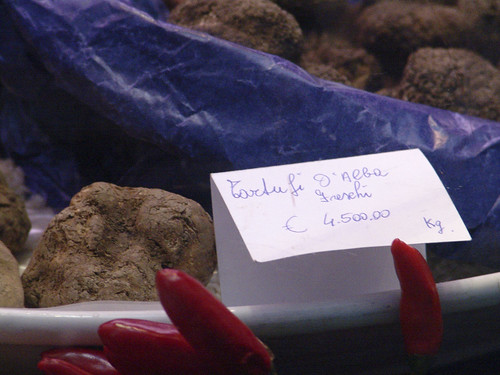 Tartufi D'Alba
Freschi
€ 4.500.00 Kg.